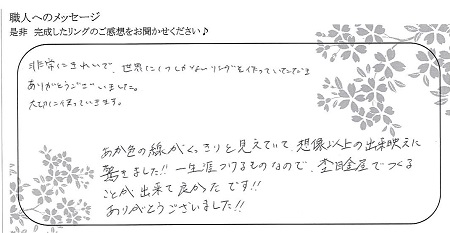 職人へのメッセージ
是非 完成したリングのご感想をお聞かせください♪
非常にきれいで、世界に1つしかないリングを作っていただき
ありがとうございました。
大切に使っていきます。
あか色の線がくっきりと見えていて、想像以上の出来映えに
驚きました!! 一生涯つけるものなので、杢目金屋でつくる
ことが出来て良かったです!!
ありがとうございました!!